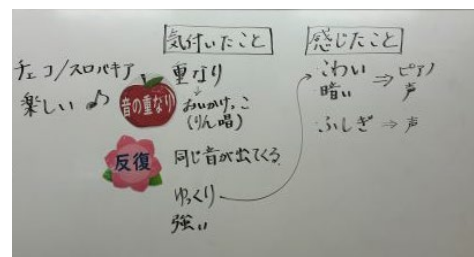 気付いたこと
感じたこと
チェコ/スロバキア
楽しい♪
音の重なり
重なり
↓
おいかけっこ
(りん唱)
反復
同じ音が出てくる
ゆっくり
強い
こわい
暗い
⇒ピアノ
声
ふしぎ → 声